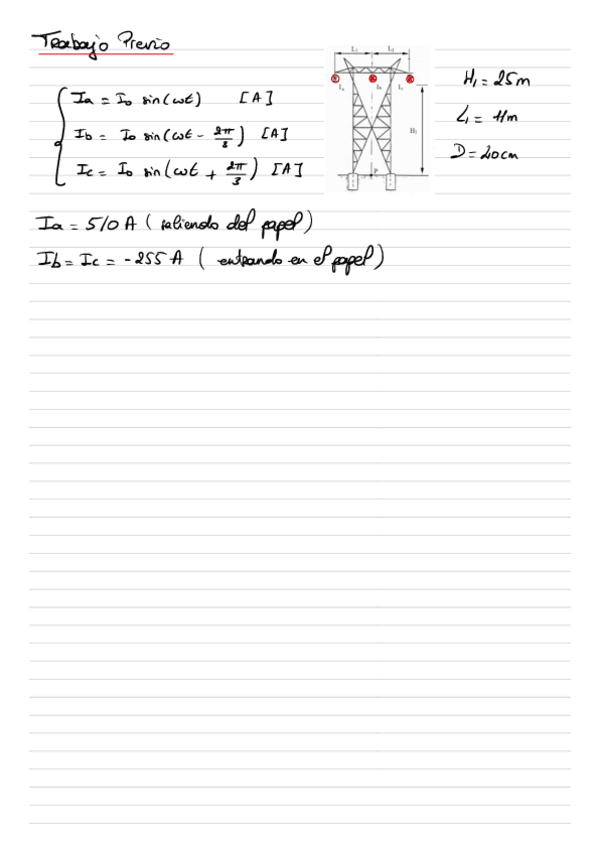 Trabajo Previo
Ia = Io sin(ωt) [A]
Ib = Io sin(ωt - 2π/3) [A]
Ic = Io sin(ωt + 2π/3) [A]
L₁ L₁
Ia Ib Ic
H₁
P
H₁ = 25m
L₁ = 11m
D = 20cm
Ia = 510 A (saliendo del papel)
Ib = Ic = -255 A (entrando en el papel)